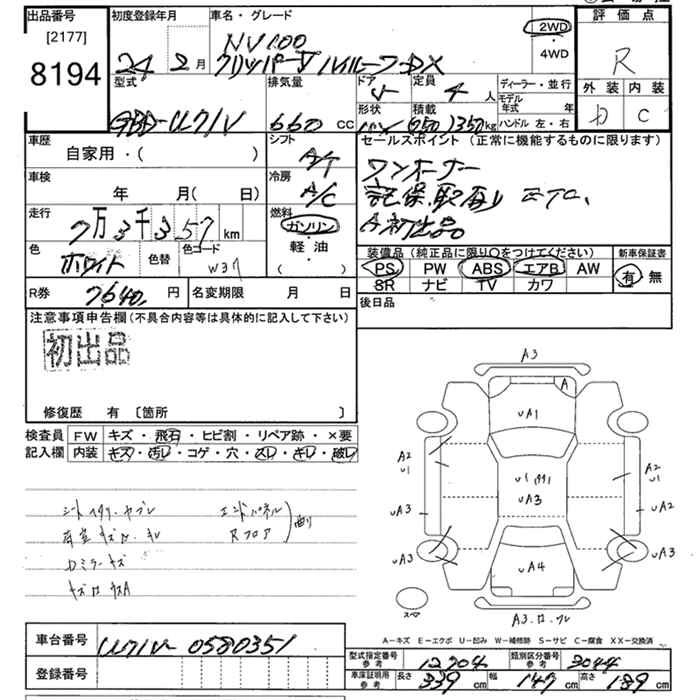 出品番号
[2177]
8194
初度登録年月
24 2月
車名・グレード
NV100
クリッパーV ハイルーフ DX
2WD
・
4WD
評価点
R
外装 内装
D C
型式
GBD-U71V
排気量
660 CC
ドア
5
定員
4 人
ディーラー・並行
モデル年式 年
ハンドル 左・右
形状
積載
350 kg
車歴
自家用・( )
シフト
A/T
車検
年 月( 日)
冷房
A/C
走行
7万3千357 km
燃料
ガソリン
・
軽・油
( ・ )
色
ホワイト
色替
色コード
W37
R券
7640 円
名変期限 月 日
セールスポイント(正常に機能するものに限ります)
ワンオーナー
記保、取有り ETC、
初出品
装備品(純正品に限り○をつけてください)
新車保証書
PS PW ABS エアB AW
SR ナビ TV カワ
有 無
後日品
注意事項申告欄(不具合内容等は具体的に記入して下さい)
初出品
修復歴 有 〔箇所 〕
検査員
記入欄
FW キズ・飛石・ヒビ割・リペア跡・×要
内装 キズ・汚レ・コゲ・穴・スレ・キレ・破レ
シートヘタリ・ヤブレ
エンドパネル
Rフロア
曲り
A3
A
UA1
A2
U1
A2
U1
UA3
UA3
UA2
UA3
UA3
UA4
スペ
A-キズ E-エクボ U-凹み W-補修跡 S-サビ C-腐食 XX-交換済
車台番号
U71V-0580351
登録番号
型式指定番号
参考
12904
類別区分番号
参考
3044
車庫証明用
参考
長さ 339 cm
幅 147 cm
高さ 189 cm